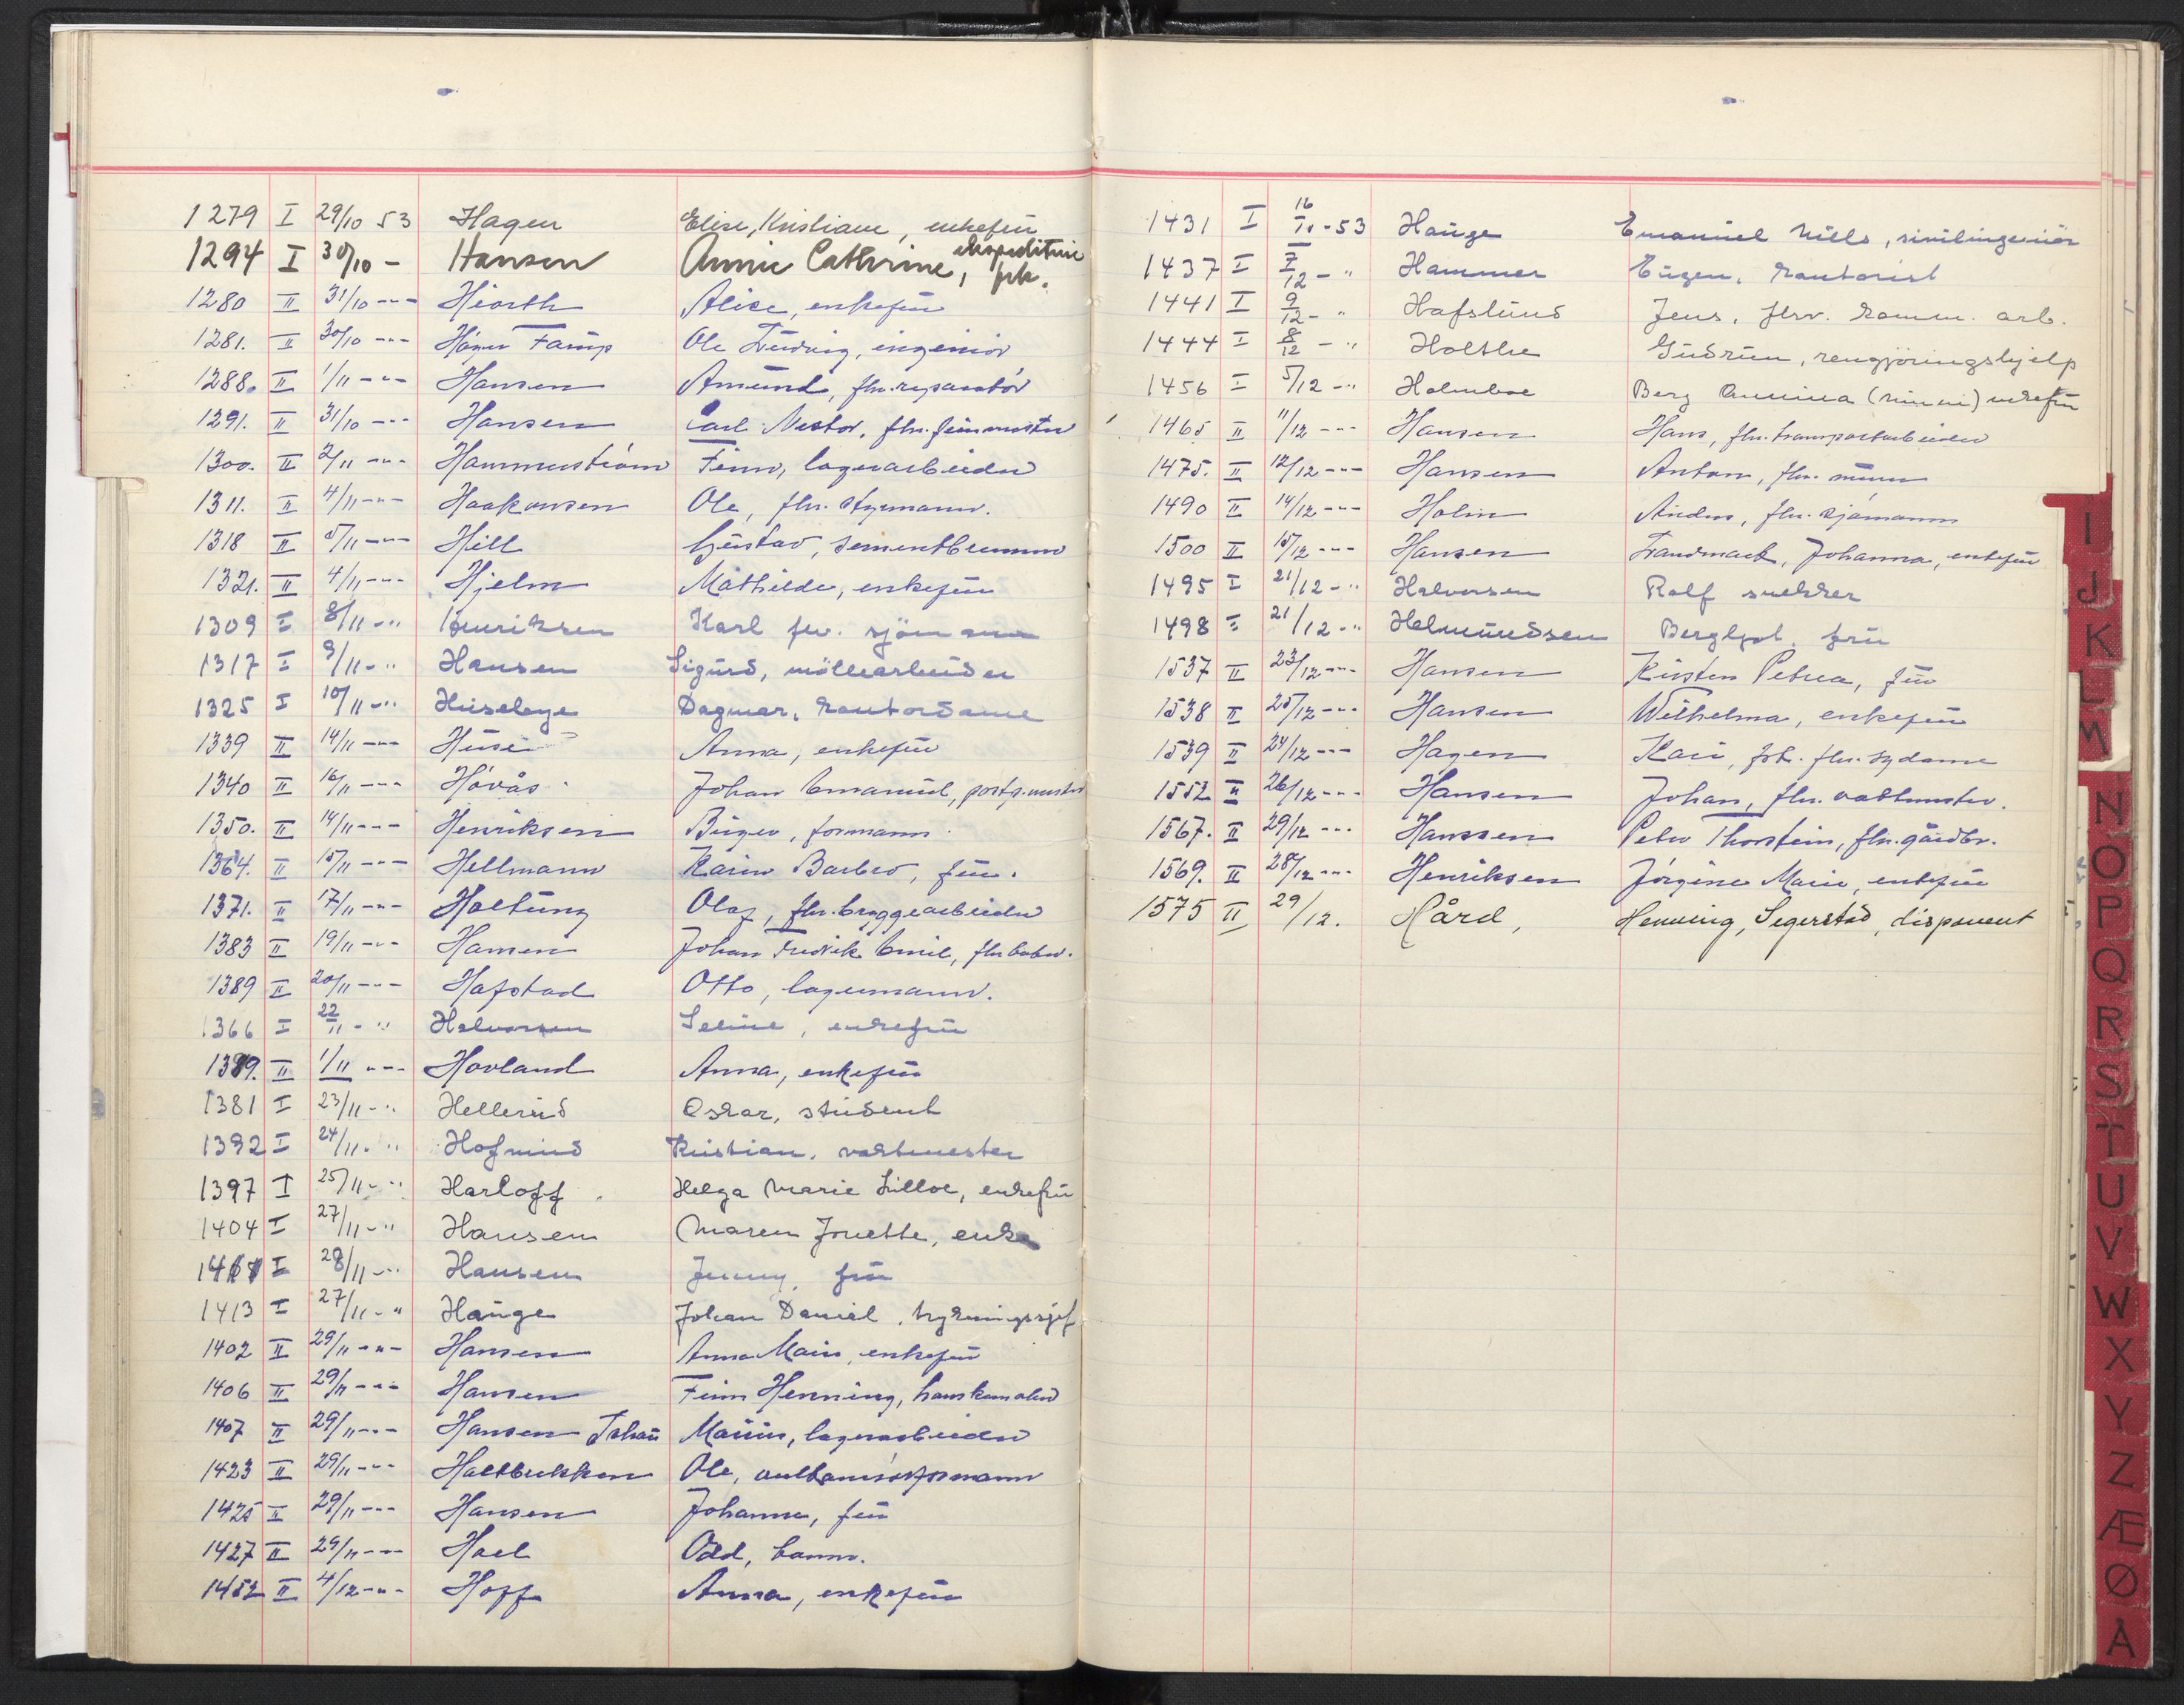 1279 I 29/10 53 Hagen Elise, Kristiane, enkefrü
1294 I 30/10 - Hansen Annie Cathrine, ekspeditrise frk.
1280 II 31/10 -"- Hiorth Alice, enkefrü
1281. II 30/10 -"- Ole Lüdvig, ingeniör
1288. II 1/11 -"- Hansen Amünd, fhv. reparatör
1291. II 31/10 -"- Hansen Carl Nestor, fhv.
1300. II 2/11 -"- Hammerström Finn, lagerarbeider
1311. II 4/11 -"- Haakonsen Ole, fhv. styrmann.
1318 II 5/11 -"- Hill Güstav,
1321. II 4/11 -"- Hjelm Mathilde, enkefrü
1309 I 8/11 -" Henriksen Karl fhv. sjömann
1317 I 9/11 -" Hansen Sigürd, möllearbeider
1325 I 10/11 -" Hüsebye Dagmar, kontordame
1339 II 14/11 -"- Anna, enkefrü
1340 II 16/11 -"- Hövås Johan Emanuel,
1350. II 14/11 -"- Henriksen Birger, formann
1364. II 15/11 -"- Hellmann Karin Barbro, frü.
1371. II 17/11 -"- Holtüng Olaf, fhv. bryggearbeider
1383 II 19/11 -"- Hansen Johan Fredrik Emil,
1389 II 20/11 -"- Hafstad Otto, lagermann.
1366 I 22/11 -" Halvorsen Seline, enkefrü
II 1/11 -"- Hovland Anna, enkefrü
1381 I 23/11 -" Hellerüd Oskar, stüdent
1392 I 24/11 -" Kristian, vaktmester
1397 I 25/11 -" Harloff Helga Marie Lilloe, enkefrü
1404 I 27/11 -" Hansen Maren Jonette, enke
I 28/11 -" Hansen Jenny, frü
1413 I 27/11 -" Haüge Johan Daniel,
1402 II 29/11 -"- Hansen Anna Marie, enkefrü
1406 II 29/11 -"- Hansen Finn Henning, hanskemaker
1407 II 29/11 -"- Hansen Marius, lagerarbeider
1423 II 29/11 -"- Holtbekken Ole,
1425 II 29/11 -"- Hansen Johanne, frü
1427 II 29/11 -"- Hoel Odd, barn.
1452 II 4/12 -"- Hoff Anna, enkefrü
1431 I 16/11 -53 Haüge Emanüel Nills, sivilingeniör
1437 I 7/12 -" Hammer Eügen, kontorist
1441 I 9/12 -" Hafslünd Jens, fhv. komm. arb.
1444 I 8/12 -" Holthe Güdrün, rengjöringshjelp
1456 I 5/12 -" Holmboe Berg Annina enkefrü
1465 II 11/12 -"- Hansen Hans, fhv. transportarbeider
1475. II 12/12 -"- Hansen Anton, fhv. mürer
1490 II 14/12 -"- Holm Anders, fhv. sjömann
1500 II 15/12 -"- Hansen Trandmark, Johanna, enkefrü
1495 I 21/12 -" Halvorsen Rolf snekker
1498 I 21/12 -" Helmündsen Bergljot, frü
1537 II 23/12 -"- Hansen Kirsten Petrea, frü
1538 II 25/12 -"- Hansen Wilhelma, enkefrü
1539 II 24/12 -"- Hagen Kari, frk. fhv. sydame
1552 II 26/12 -"- Hansen Johan, fhv. vaktmester.
1567. II 29/12 -"- Hanssen Peter Thorstein, fhv. gårdbr.
1569. II 28/12 -"- Henriksen Jörgine Marie, enkefrü
1575 II 29/12. Hård, Henning, Segerstad, disponent
I
J
K
L
M
N
O
P
Q
R
S
T
U
V
W
X
Y
Z
Æ
Ø
A